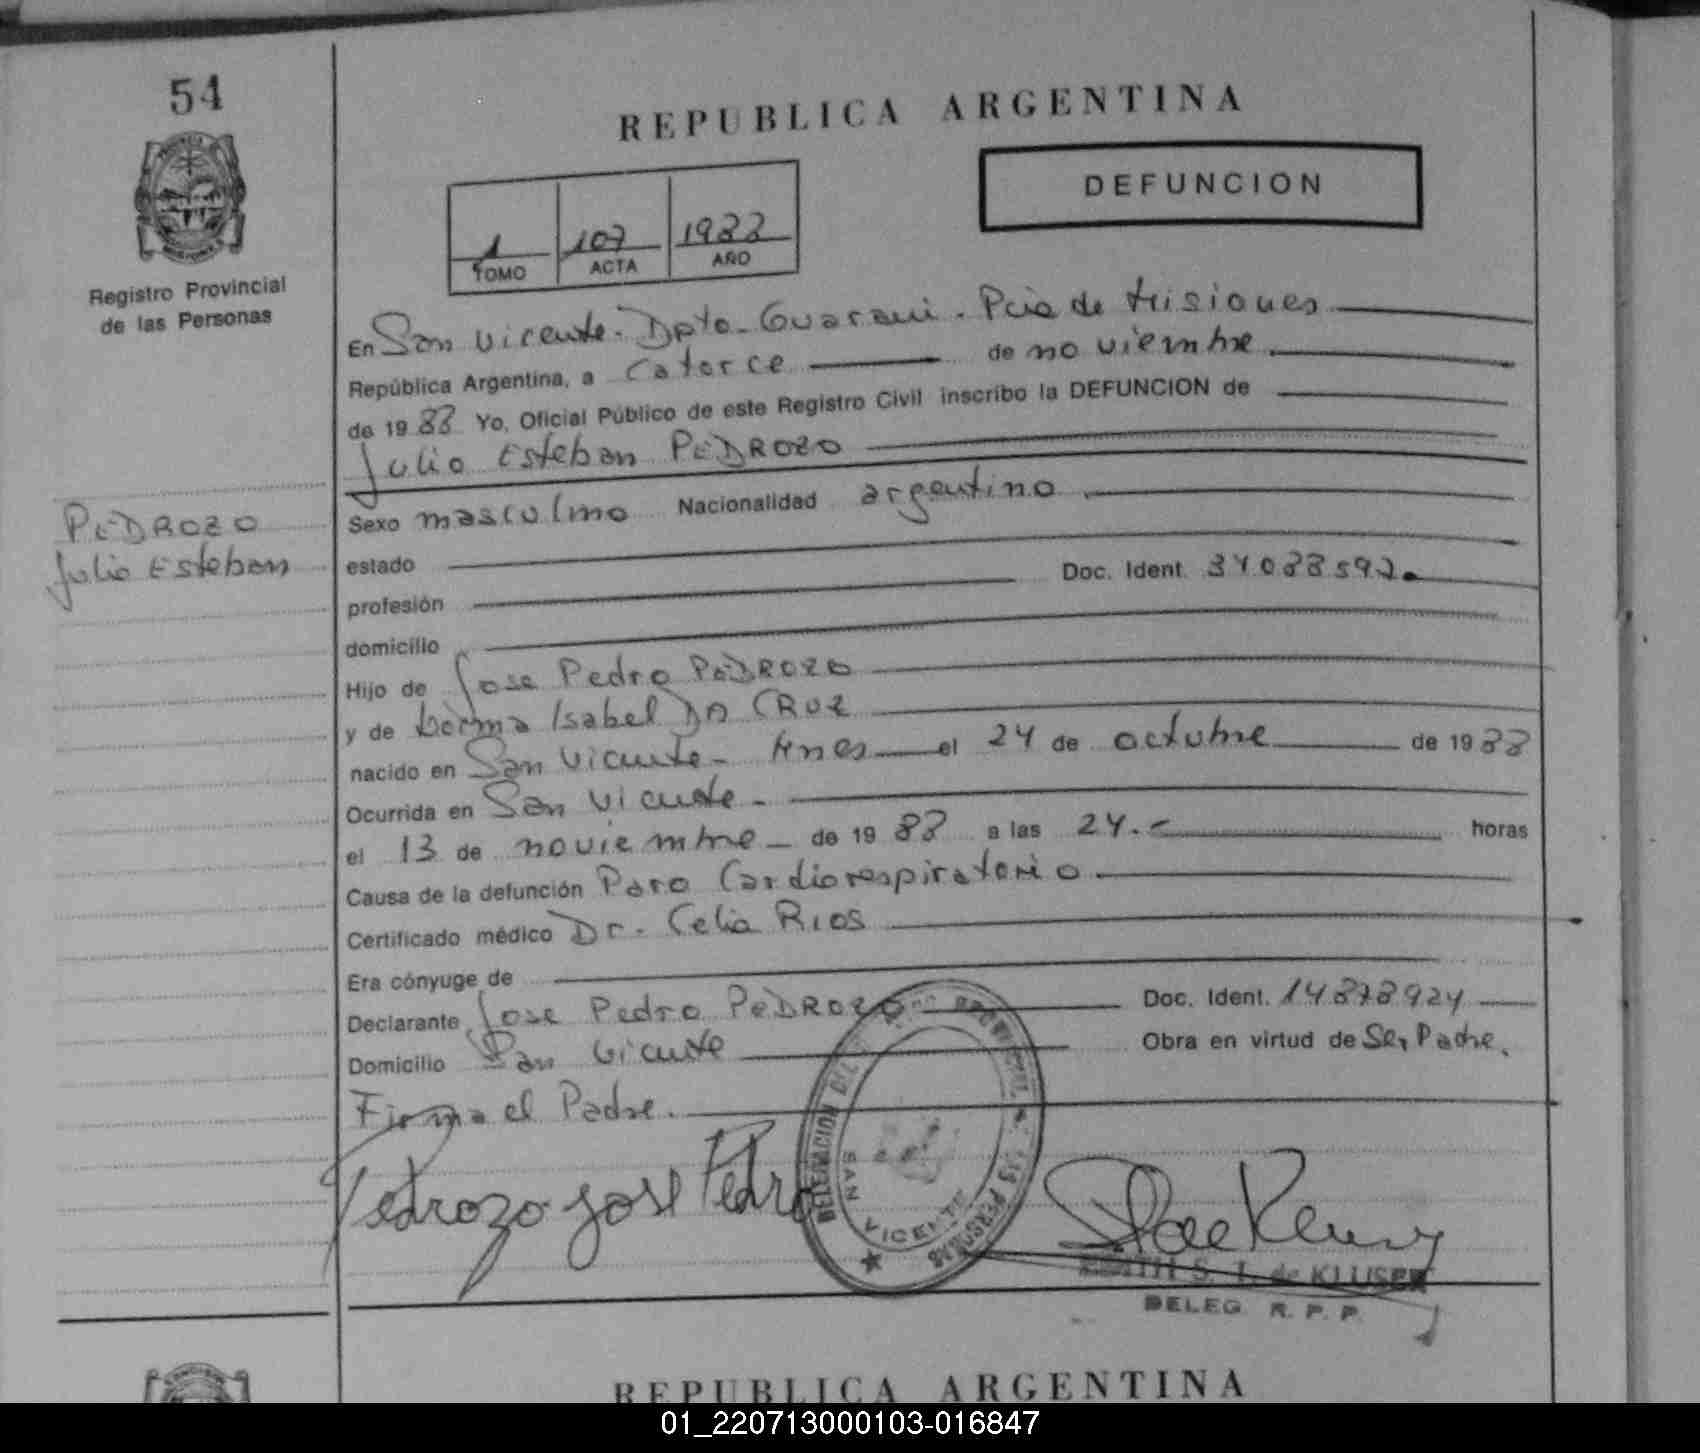 54
REPUBLICA ARGENTINA
DEFUNCION
1 107 1988
TOMO ACTA AÑO
Registro Provincial
de las Personas
En San Vicente - Dpto - Guarani - Pcia de Misiones
República Argentina, a Catorce de noviembre
de 1988 Yo, Oficial Público de este Registro Civil inscribo la DEFUNCION de
Julio Esteban PEDROZO
PEDROZO
Julio Esteban
Sexo masculino Nacionalidad argentino
estado
profesión Doc. Ident. 34088592.
domicilio
Hijo de Jose Pedro PEDROZO
y de Norma Isabel DA CRUZ
nacido en San Vicente - Mnes el 24 de octubre de 1988
Ocurrida en San Vicente -
el 13 de noviembre de 1988 a las 24.- horas
Causa de la defunción Paro Cardiorespiratorio
Certificado médico Dr. Celia RIOS
Era cónyuge de
Declarante Jose Pedro PEDROZO Doc. Ident. 14878924
Domicilio San Vicente Obra en virtud de Ser Padre.
Firma el Padre.
Pedrozo Jose Pedro
DELEGACION DEL PROVINCIAL PERSONAS
SAN VICENTE
EDITH S. de KLUSER
DELEG. R. P. P.
REPUBLICA ARGENTINA
01_220713000103-016847